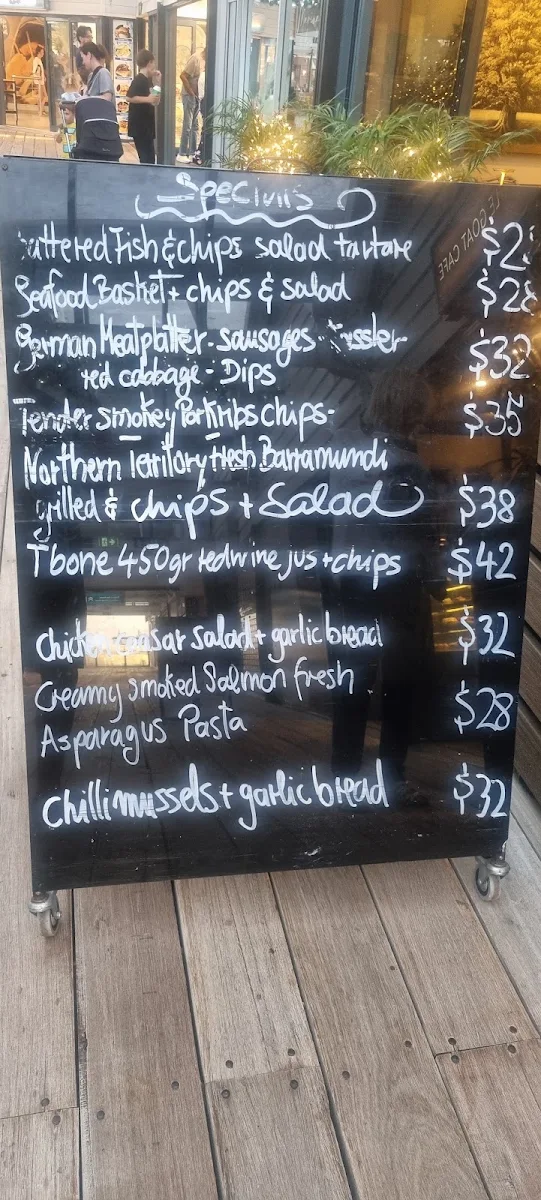 Specials
Battered Fish & chips salad tartare $2
Seafood Basket + chips & salad $28
German Meatplatter - sausages - $32
red cabbage - Dips
Tender smokey Porkribs chips- $35
Northern Territory fresh Barramundi
grilled & chips + Salad $38
Tbone 450gr redwine jus + chips $42
Chicken ceasar salad + garlic bread $32
Creamy smoked Salmon fresh
Asparagus Pasta $28
Chilli mussels + garlic bread $32